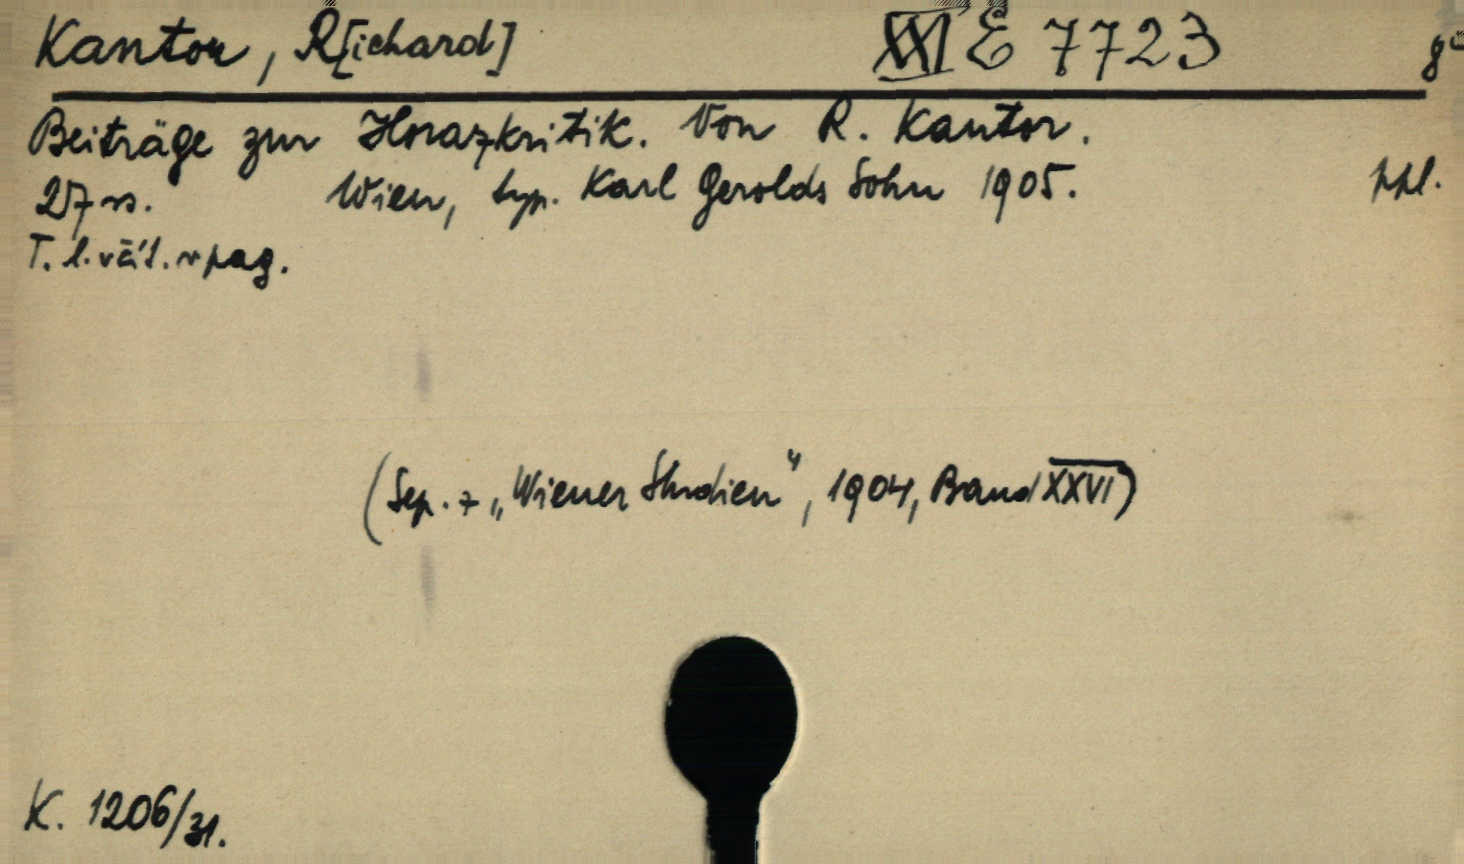 Kantor, R[ichard] XXI E 7723
Beiträge zur Horazkritik. Von R. Kantor.
27 s. Wien, typ. Karl Gerolds Sohn 1905. ppl.
T. l. vát. v pag.
(Sep. z „Wiener Studien", 1904, Band XXVI)
K. 1206/31.